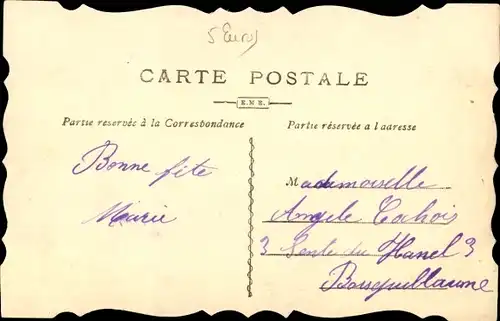 5 Euros
CARTE POSTALE
E.N.E.
Partie reservée à la Correspondance
Partie réservée a l'adresse
Bonne fête
Marie
Mademoiselle
Angèle Cahois
3 Sente du Hanel 3
Boisguillaume